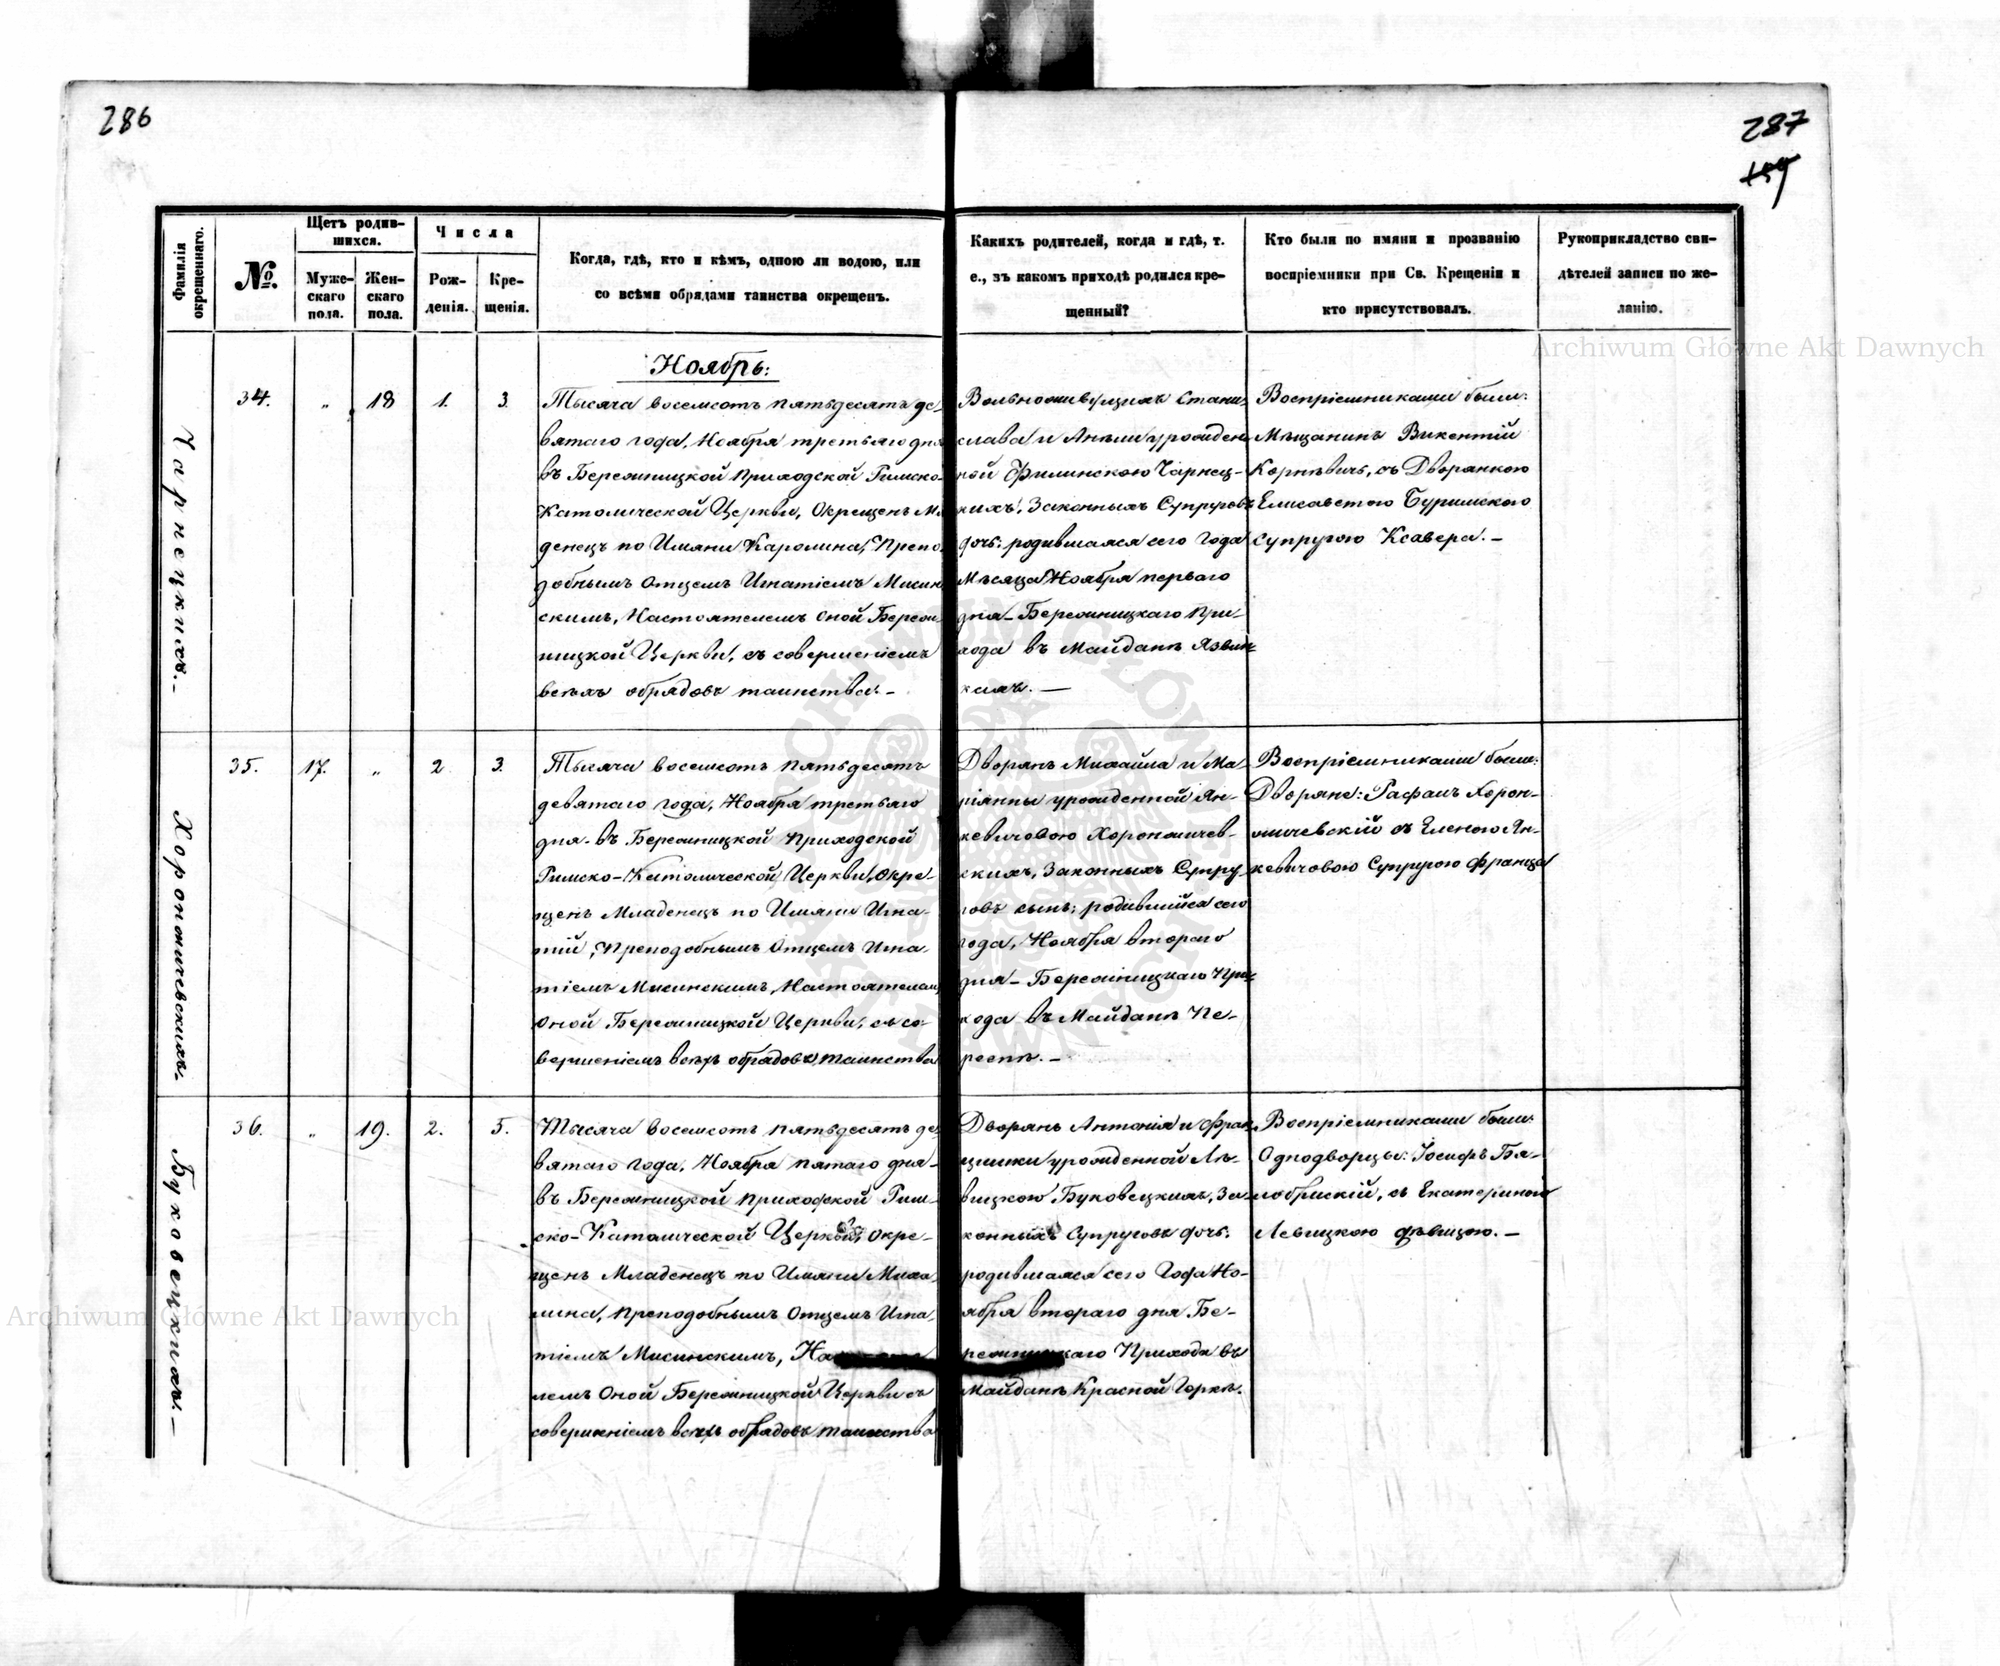 286
287
Фамилія окрещеннаго.
№.
Щетъ родив-
шихся.
Муже-
скаго
пола.
Жен-
скаго
пола.
Числа
Рож-
денія.
Кре-
щенія.
Когда, гдѣ, кто и кѣмъ, одною ли водою, или
со всѣми обрядами таинства окрещенъ.
Какихъ родителей, когда и гдѣ, т.
е., въ какомъ приходѣ родился кре-
щенный?
Кто были по имяни и прозванію
воспріемники при Св. Крещеніи и
кто присутствовалъ.
Рукоприкладство сви-
дѣтелей записи по же-
ланію.
Ноябрь:
Чарнецкихъ.-
34. „ 18 1. 3.
Тысяча восемсотъ пятьдесятъ де-
вятаго года, Ноября третьяго дня
въ Бережницкой Приходской Римско-
Католической Церкви, Окрещенъ Мла
денецъ по Имяни Каролина, Препо-
добнымъ Отцемъ Игнатіемъ Мисин
скимъ, Настоятелемъ Оной Береж-
ницкой Церкви, съ совершеніемъ
всѣхъ обрядовъ таинства.-
Вольноживущихъ Стани-
слава и Анели урожден
ной Филинскою Чарнец-
кихъ, Законныхъ Супруговъ
дочь: родившаяся сего Года
Мѣсяца Ноября перваго
дня- Бережницкаго При-
хода въ Майданѣ Язвин
кахъ.-
Воспріемниками были:
Мѣщанинъ Викентій
Корневичъ, съ Дворянкою
Елисаветою Буримскою
Супругою Ксавера.-
Хороножичевскихъ.
35. 17. „ 2. 3.
Тысяча восемсотъ пятьдесятъ
девятаго года, Ноября третьяго
дня. въ Бережницкой Приходской
Римско-Католической Церкви, Окре-
щенъ Младенецъ по Имяни Игна-
тій, Преподобнымъ Отцемъ Игна-
тіемъ Мисинскимъ, Настоятелемъ
Оной Бережницкой Церкви, съ со-
вершеніемъ всѣхъ обрядовъ таинства
Дворянъ Михайла и Ма-
ріянны урожденной Ян-
кевичовою Хороножичев-
скихъ, Законныхъ Супру-
говъ сынъ; родившійся сего
года, Ноября втораго
дня- Бережницкаго При-
хода въ Майданѣ Пе-
респѣ.-
Воспріемниками были:
Дворяне: Рафаилъ Хорон-
ожичевскій съ Еленою Ян-
кевичовою Супругою Франца
Буковецкихъ.-
36. „ 19. 2. 5.
Тысяча восемсотъ пятьдесятъ де
вятаго года, Ноября пятаго дня-
въ Бережницкой Приходской Рим-
ско-Католической Церкви, Окре-
щенъ Младенецъ по Имяни Миха-
лина, Преподобнымъ Отцемъ Игна-
тіемъ Мисинскимъ,
лемъ Оной Бережницкой Церкви съ
совершеніемъ всѣхъ обрядовъ таинства
Дворянъ Антонія и Фран
цишки урожденной Ле-
вицкою Буковецкихъ, За-
конныхъ Супруговъ дочь:
родившаяся сего Года Но-
ября втораго дня Бе-
режницкаго Прихода въ
Майданѣ Красной Горкѣ.
Воспріемниками были:
Однодворцы: Іосифъ Бя-
лобрискій, съ Екатериною
Левицкою дѣвицою.-
Archiwum Główne Akt Dawnych
Archiwum Główne Akt Dawnych